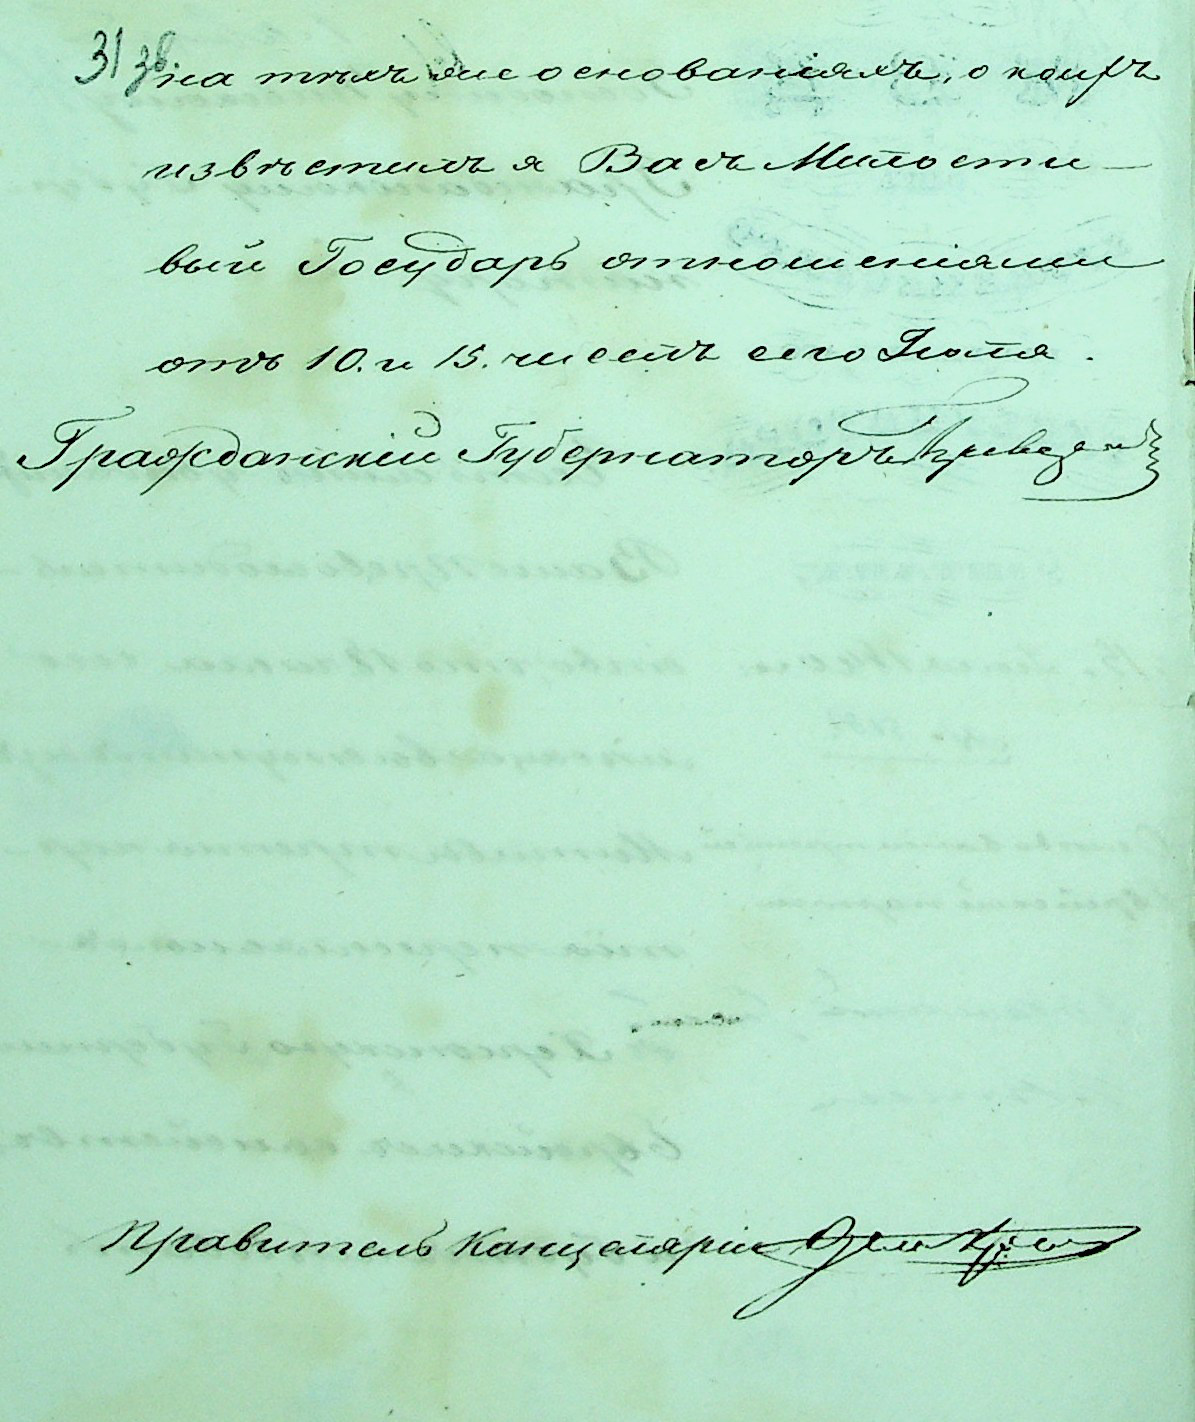 31 зв.
на тѣхъ же основаніяхъ, о коихъ
извѣстилъ я Васъ Милости-
вый Государь отношеніями
отъ 10. и 15. чиселъ сего Іюля.
Гражданскій Губернаторъ
Правитель Канцеляріи